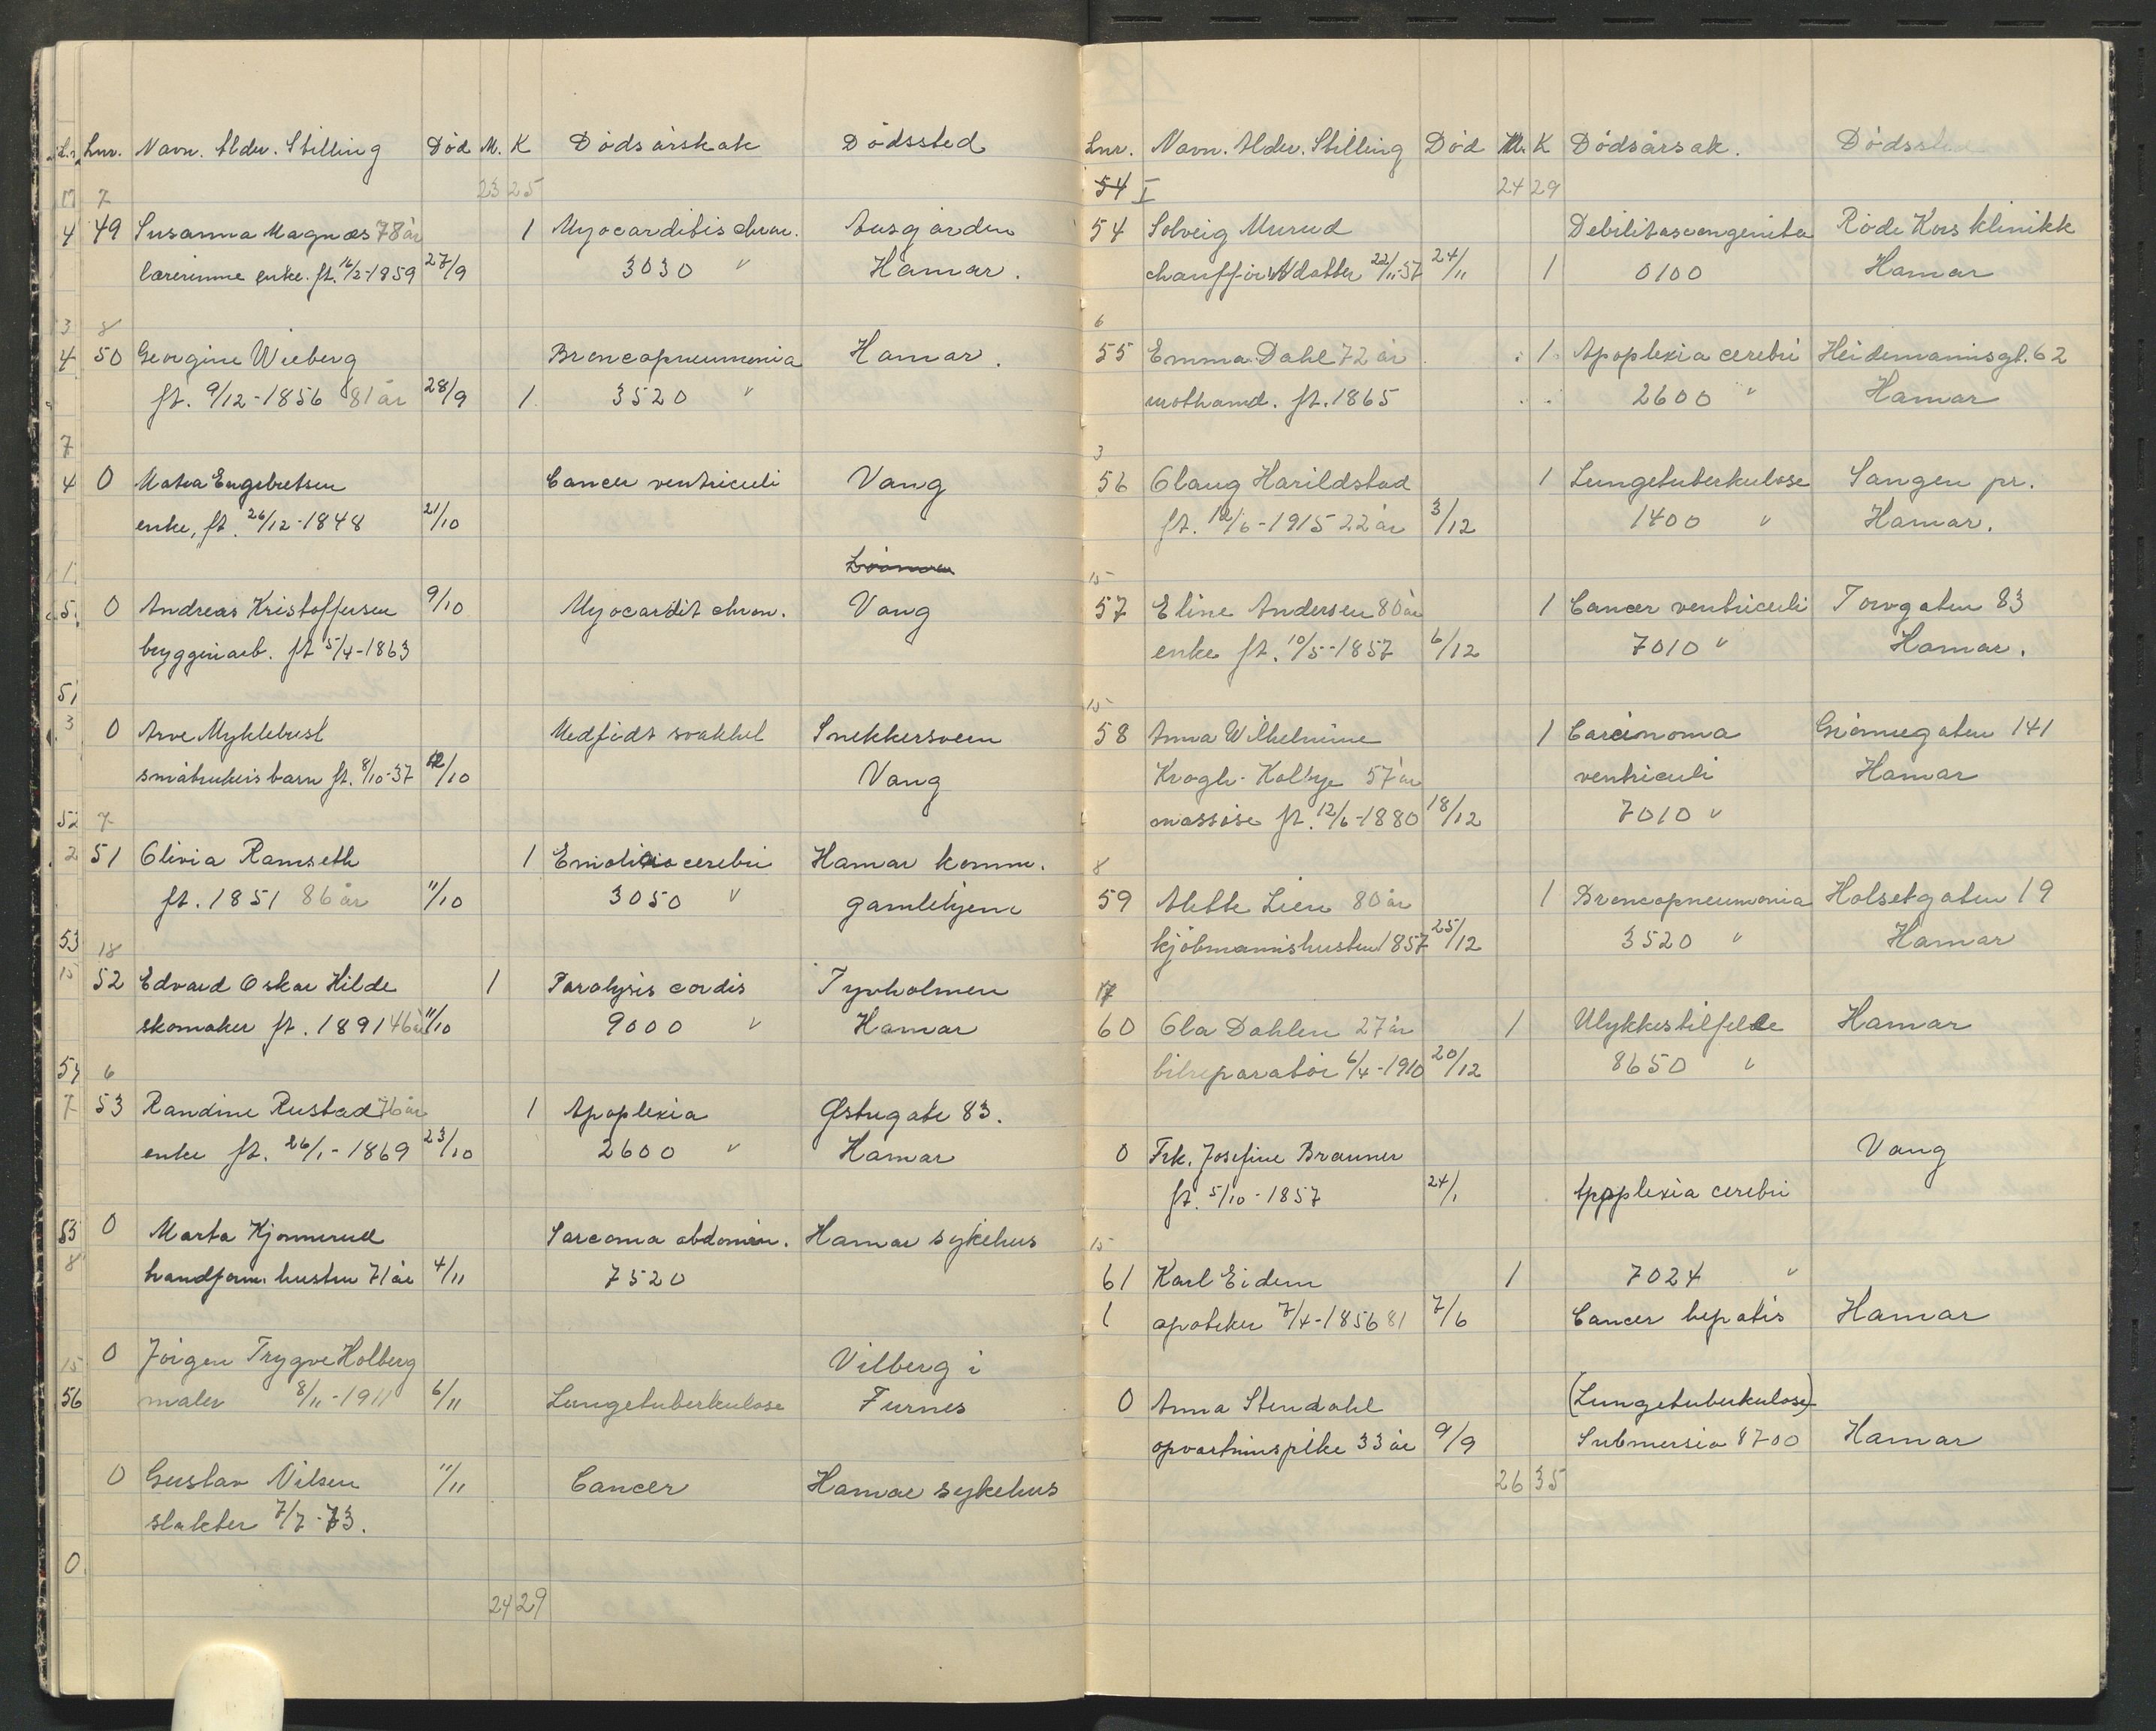 Lnr. Navn. Alder. Stilling Død M. K Dødsårskak Dødssted
7 23 25
49 Susanna Magnæs 78 år 1 Myocarditis chron. Aasgården
lærerinne enke. ft. 16/2-1859 27/9 3030 " Hamar.
8
50 Georgine Wieberg Broncopneumonia Hamar.
ft. 9/12-1856 81 år 28/9 1 3520 "
0 Engebretsen Cancer ventriculi Vang
enke, ft. 26/12-1848 21/10
0 Andreas Kristoffersen 9/10 Myocardit chron. Vang
bryggeriarb. ft 5/4-1863
0 Arve Myklebust Medfødt svakhet Snekkersveen
småbrukers barn ft. 8/10-37 12/10 Vang
7
51 Olivia Ramseth 1 cerebri Hamar komm.
ft. 1851 86 år 11/10 3050 " gamlehjem
18
52 Edvard Oskar Hilde 1 Paralysis cordis Tyvholmen
skomaker ft. 1891 46 år 11/10 9000 " Hamar
6
53 Randine Rustad 76 år 1 Apoplexia Østregate 83.
enke ft. 26/1-1869 23/10 2600 " Hamar
0 Marta Kjonnerud Sarcoma abdomin. Hamar sykehus
hustru 71 år 4/11 7520
0 Jörgen Trygve Holberg Vilberg i
maler 8/11-1911 6/11 Lungetuberkulose Furnes
0 Gustav Nilsen 11/11 Cancer Hamar sykehus
slakter 7/7-73.
24 29
Lnr. Navn. Alder. Stilling Död M. K Dødsårsak. Dødssted
54 I 24 29
54 Solveig Murud Debilitas congenita Röde Kors klinikk
chauffør datter 22/11-37 24/11 1 0100 Hamar
6
55 Emma Dahl 72 år 1 Apoplexia cerebri Heidemannsgt. 62
ft. 1865 2600 " Hamar
3
56 Olaug Harildstad 1 Lungetuberkulose Sangen pr.
ft. 12/6-1915 22 år 3/12 1400 " Hamar.
15
57 Eline Andersen 80 år 1 Cancer ventriculi Torvgaten 83
enke ft. 10/5-1857 6/12 7010 " Hamar.
15
58 Anna Wilhelmine 1 Carcinoma Grönnegaten 141
Krogh-Kolbye 57 år ventriculi Hamar
massøse ft. 12/6-1880 18/12 7010 "
8
59 Alette Lien 80 år 1 Broncopneumonia Holsetgaten 19
kjöbmannshustru 1857 25/12 3520 " Hamar
17
60 Ola Dahlen 27 år 1 Ulykkestilfelle Hamar
bilreparatör 6/4-1910 20/12 8650 "
0 Frk. Josefine Brauner Vang
ft. 5/10-1857 24/1 Apoplexia cerebri
15
61 Karl Eidem 1 7024 "
1 apoteker 7/4-1856 81 7/6 Cancer hepatis Hamar
0 Anna Stendahl (Lungetuberkulose)
opvartningspike 33 år 9/9 Submersio 8700 Hamar
26 35